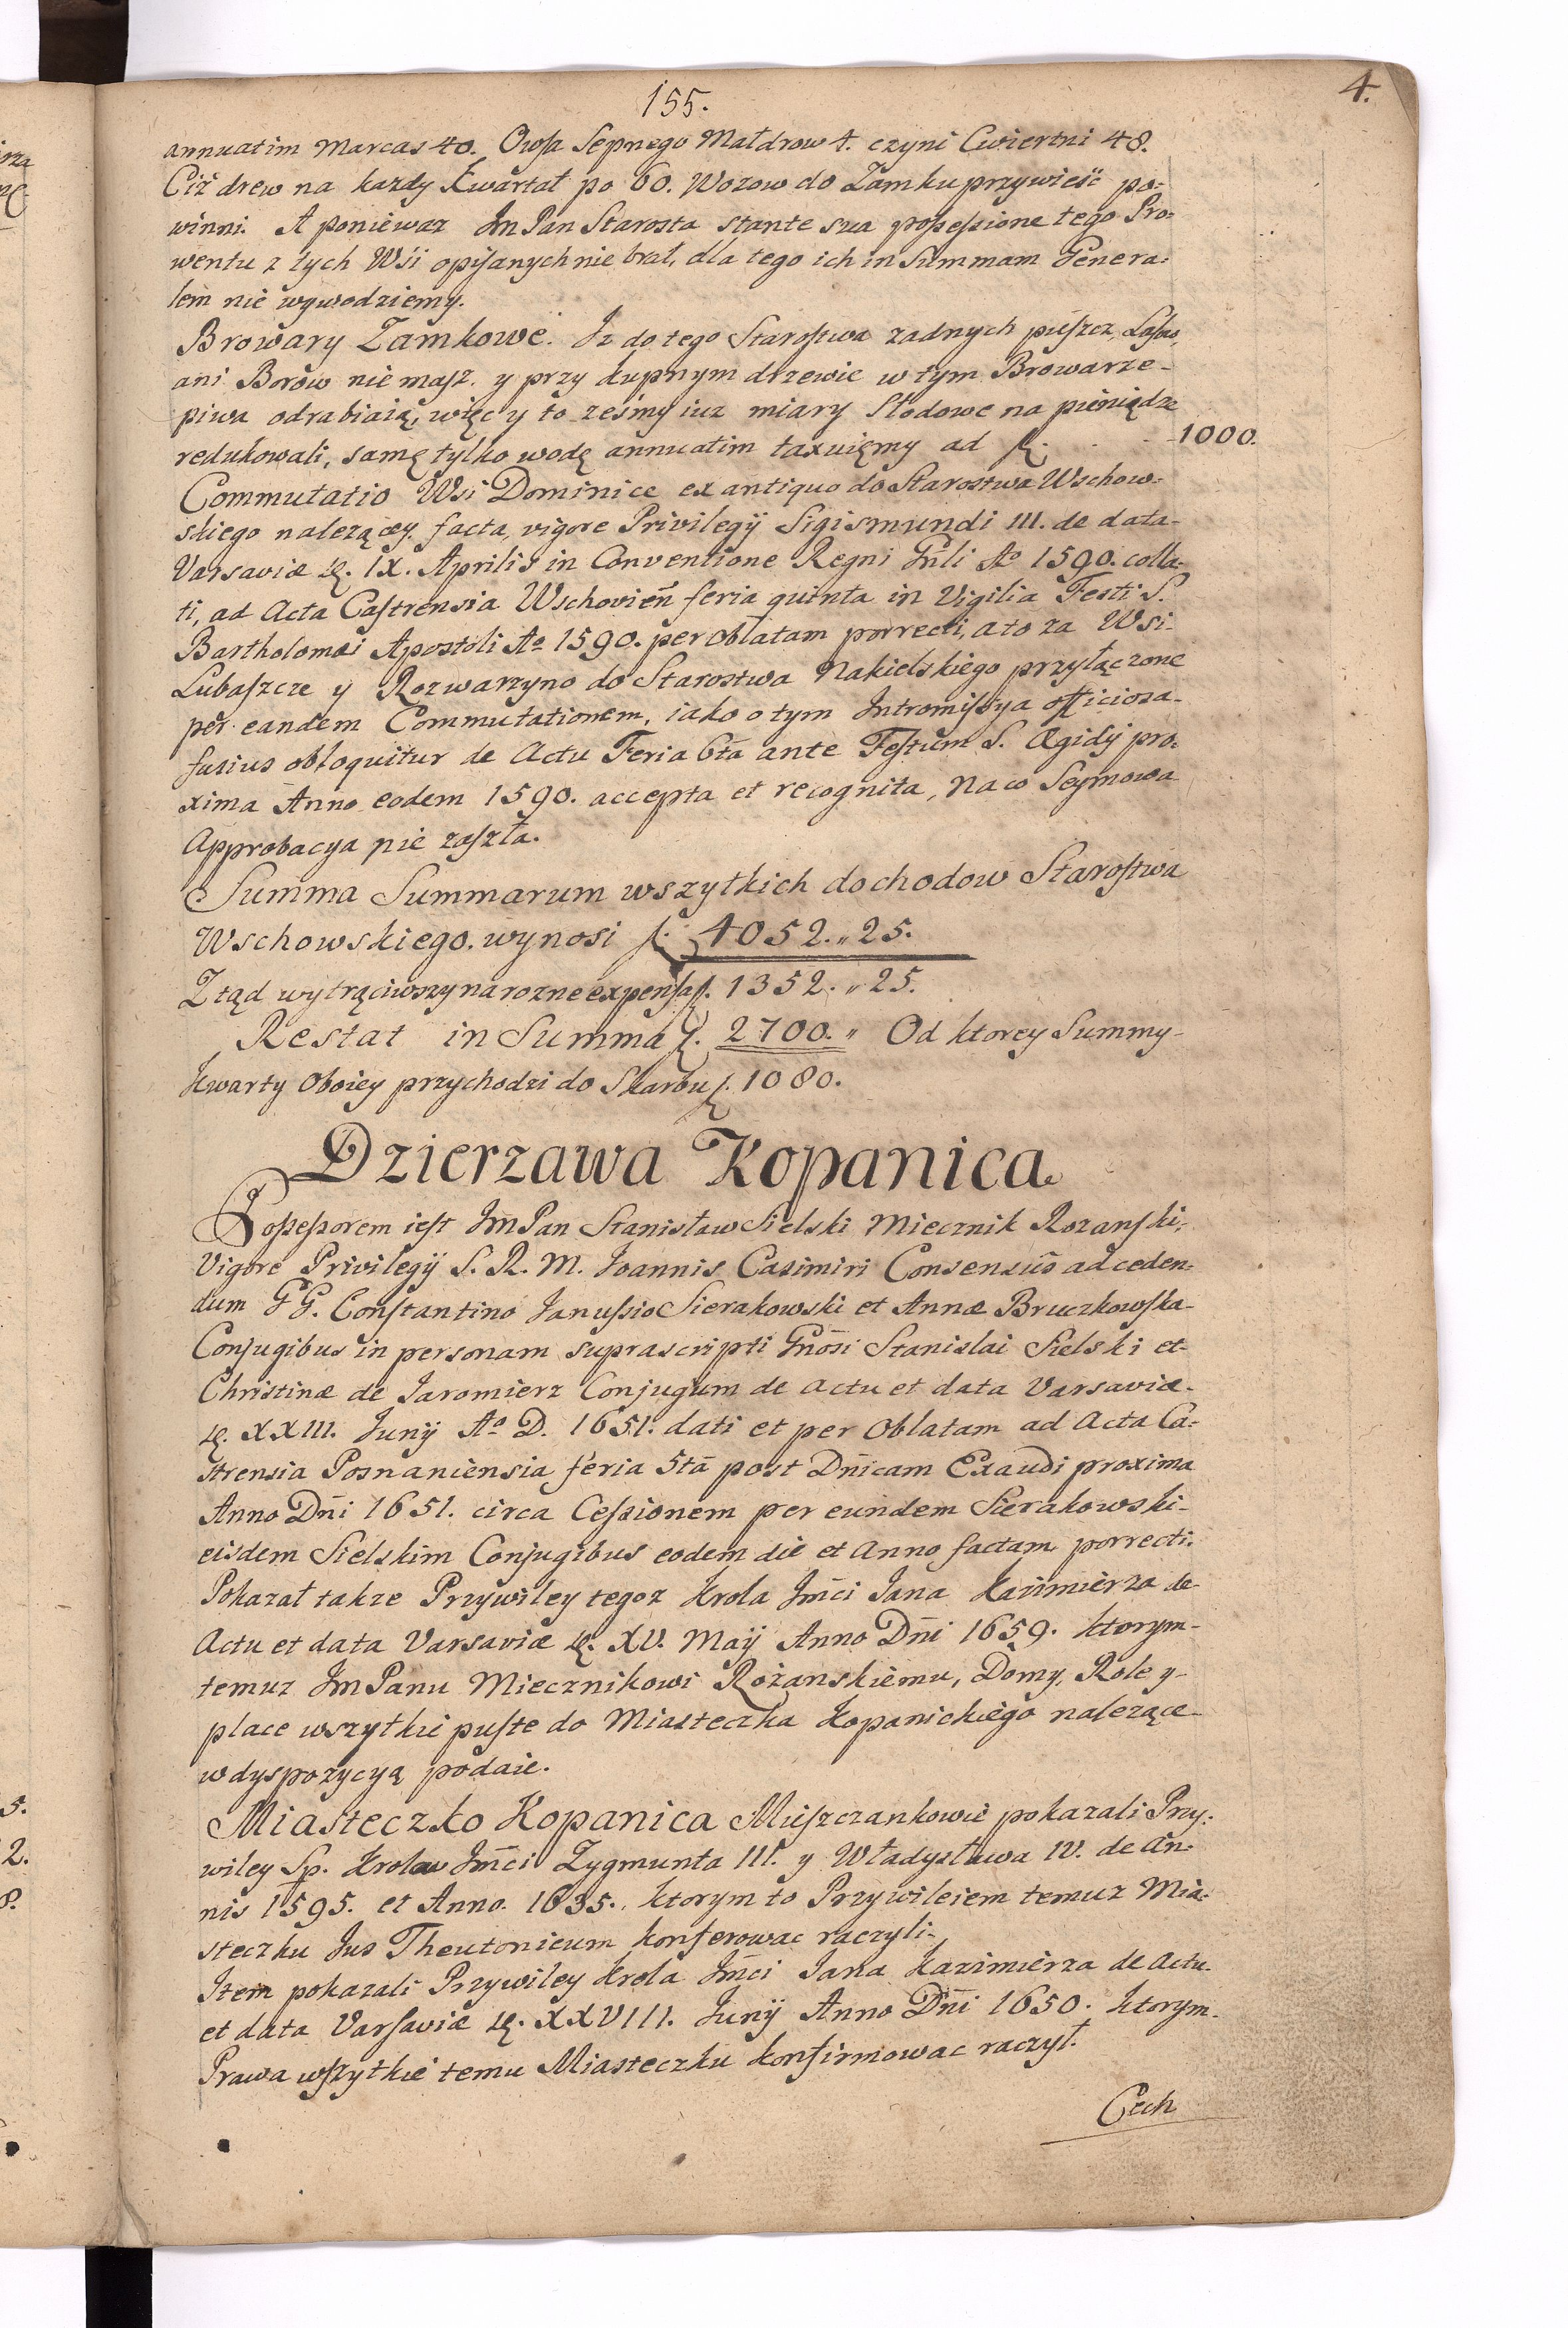 155.
4.
annuatim Marcas 40. Owsa Sepnego Małdrow 4. czyni Cwiertni 48.
Ciż drew na kazdy Kwartał po 60. Wozow do Zamku przywieść po:
winni. A ponieważ Jm Pan Starosta stante sua possessione tego Pro:
wentu z tych Wśi opisanych nie brał, dla tego ich in Summam Genera:
lem nie wywodziemy.
Browary Zamkowe. Iz do tego Starostwa zadnych puszcz, Lasow,
ani Borow nie masz. y przy kupnym drzewie w tym Browarze
piwa odrabiaią, więc y to ześmy iuz miary Słodowe na pieniądze
redukowali, samę tylko wodę annuatim taxuięmy ad f. . . . 1000.
Commutatio Wsi Dominice ex antiquo do Starostwa Wschow:
skiego nalezącey. facta, vigore Privilegij Sigismundi III. de data
Varsaviæ d. IX. Aprilis in Conventione Regni Gnli Ao 1590. colla:
ti, ad Acta Castrensia Wschovień feria quinta in Vigilia Festi S.
Bartholomæi Apostoli Ao 1590. per oblatam porrecti, a to za Wsi
Lubaszcze y Rozwarzyno do Starostwa Nakielskiego przyłączone
per eandem Commutationem, iako o tym Intromissya officiosa
fusius obloquitur de Actu Feria 6ta ante Festum S. Ægidij pro:
xima Anno eodem 1590. accepta et recognita, Na co Seymowa
Approbacya nie zaszła.
Summa Summarum wszytkich dochodow Starostwa
Wschowskiego. wynosi f. 4052. „ 25.
Ztąd wytrąciwszy na rozne expensa f. 1352. „ 25.
Restat in Summa f. 2700. „ Od ktorey Summy
Kwarty oboiey przychodzi do Skarbu f. 1080.
Dzierzawa Kopanica
Possessorem iest Jm Pan Stanisław Sielski Miecznik Rozanski,
Vigore Privilegij S. R. M. Joannis Casimiri Consensus ad ceden:
dum GG. Constantino Janussio Sierakowski et Annæ Bruczkowska
Conjugibus in personam suprascripti Gnosi Stanislai Sielski et
Christinæ de Jaromierz Conjugum de actu et data Varsaviæ
d. XXIII. Junij Ao D. 1651. dati et per Oblatam ad Acta Ca:
strensia Posnaniensia feria 5ta post Dnicam Exaudi proxima
Anno Dni 1651. circa Cessionem per eundem Sierakowski
eisdem Sielskim Conjugibus eodem die et Anno factam porrecti.
Pokazał takze Przywiley tegoz Krola Jmci Jana Kazimierza de
Actu et data Varsaviæ d. XV. Maij Anno Dni 1659. ktorym
temuz Jm Panu Miecznikowi Rożanskiemu, Domy, Role y
place wszytkie puste do Miasteczka Kopanickiego nalezące
w dyspozycyą podaie.
Miasteczko Kopanica Mieszczankowie pokazali Przy:
wiley Sp. Krolow Jmci Zygmunta III. y Władysława IV. de An:
nis 1595. et Anno. 1635. ktorym to Przywileiem temuz Mia:
steczku Jus Theutonicum konferowac raczyli.
Item pokazali Przywiley Krola Jmci Jana Kazimierza de Actu
et data Varsaviæ d. XXVIII. Junij Anno Dni 1650. ktorym
Prawa wszytkie temu Miasteczku konfirmowac raczył.
Cech